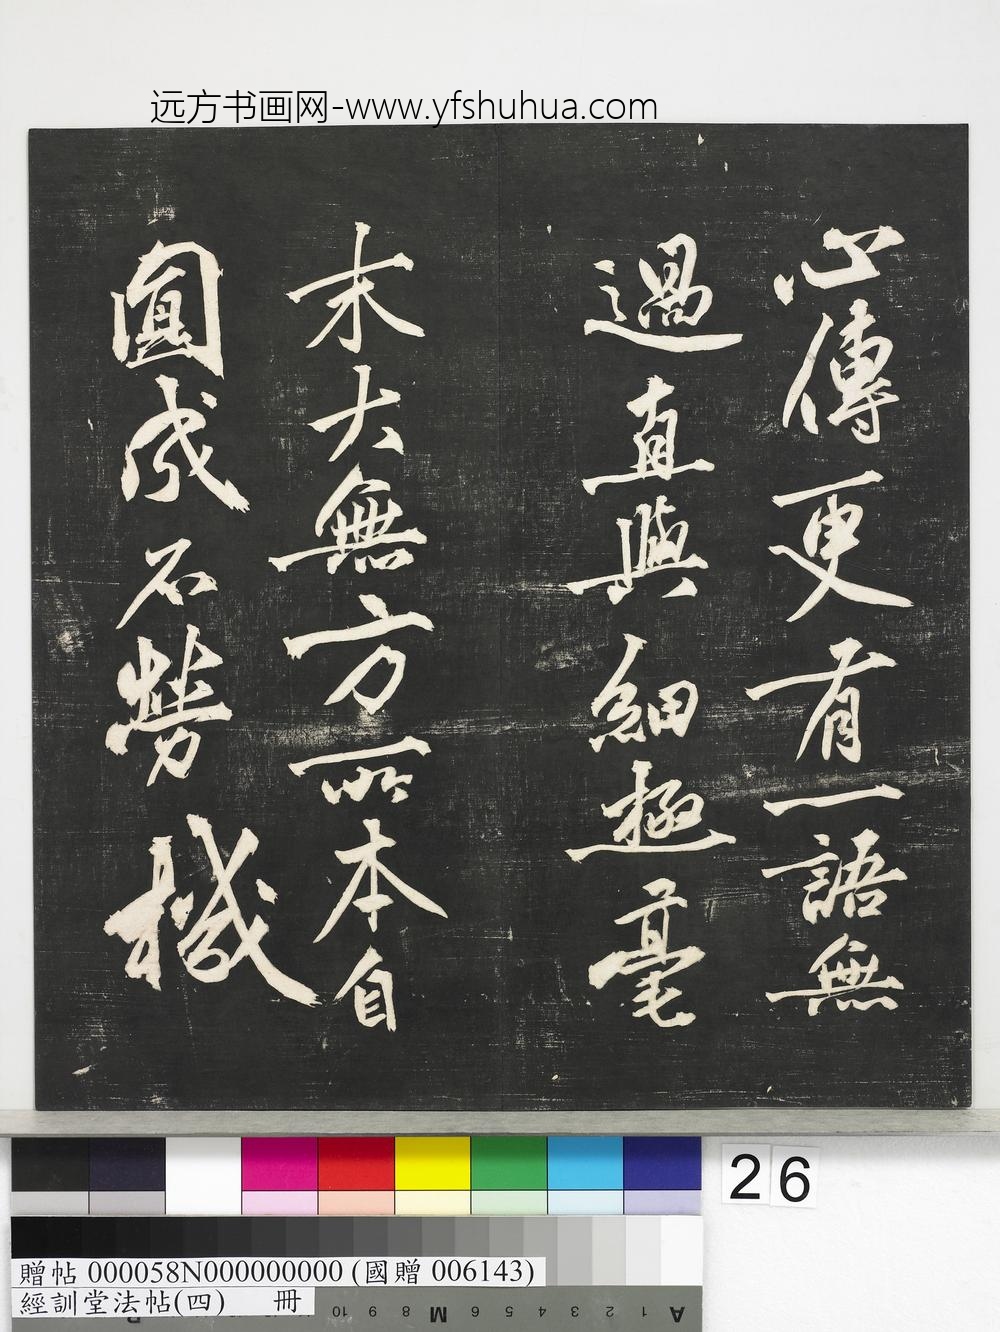 远方书画网-www.yfshuhua.com
心傳更有一語無
過直與細極毫
末大無方所本自
圓成不勞機
26
贈帖 000058N000000000 (國贈 006143)
經訓堂法帖(四) 冊
10 9 8 M 6 5 4 3 2 1 A